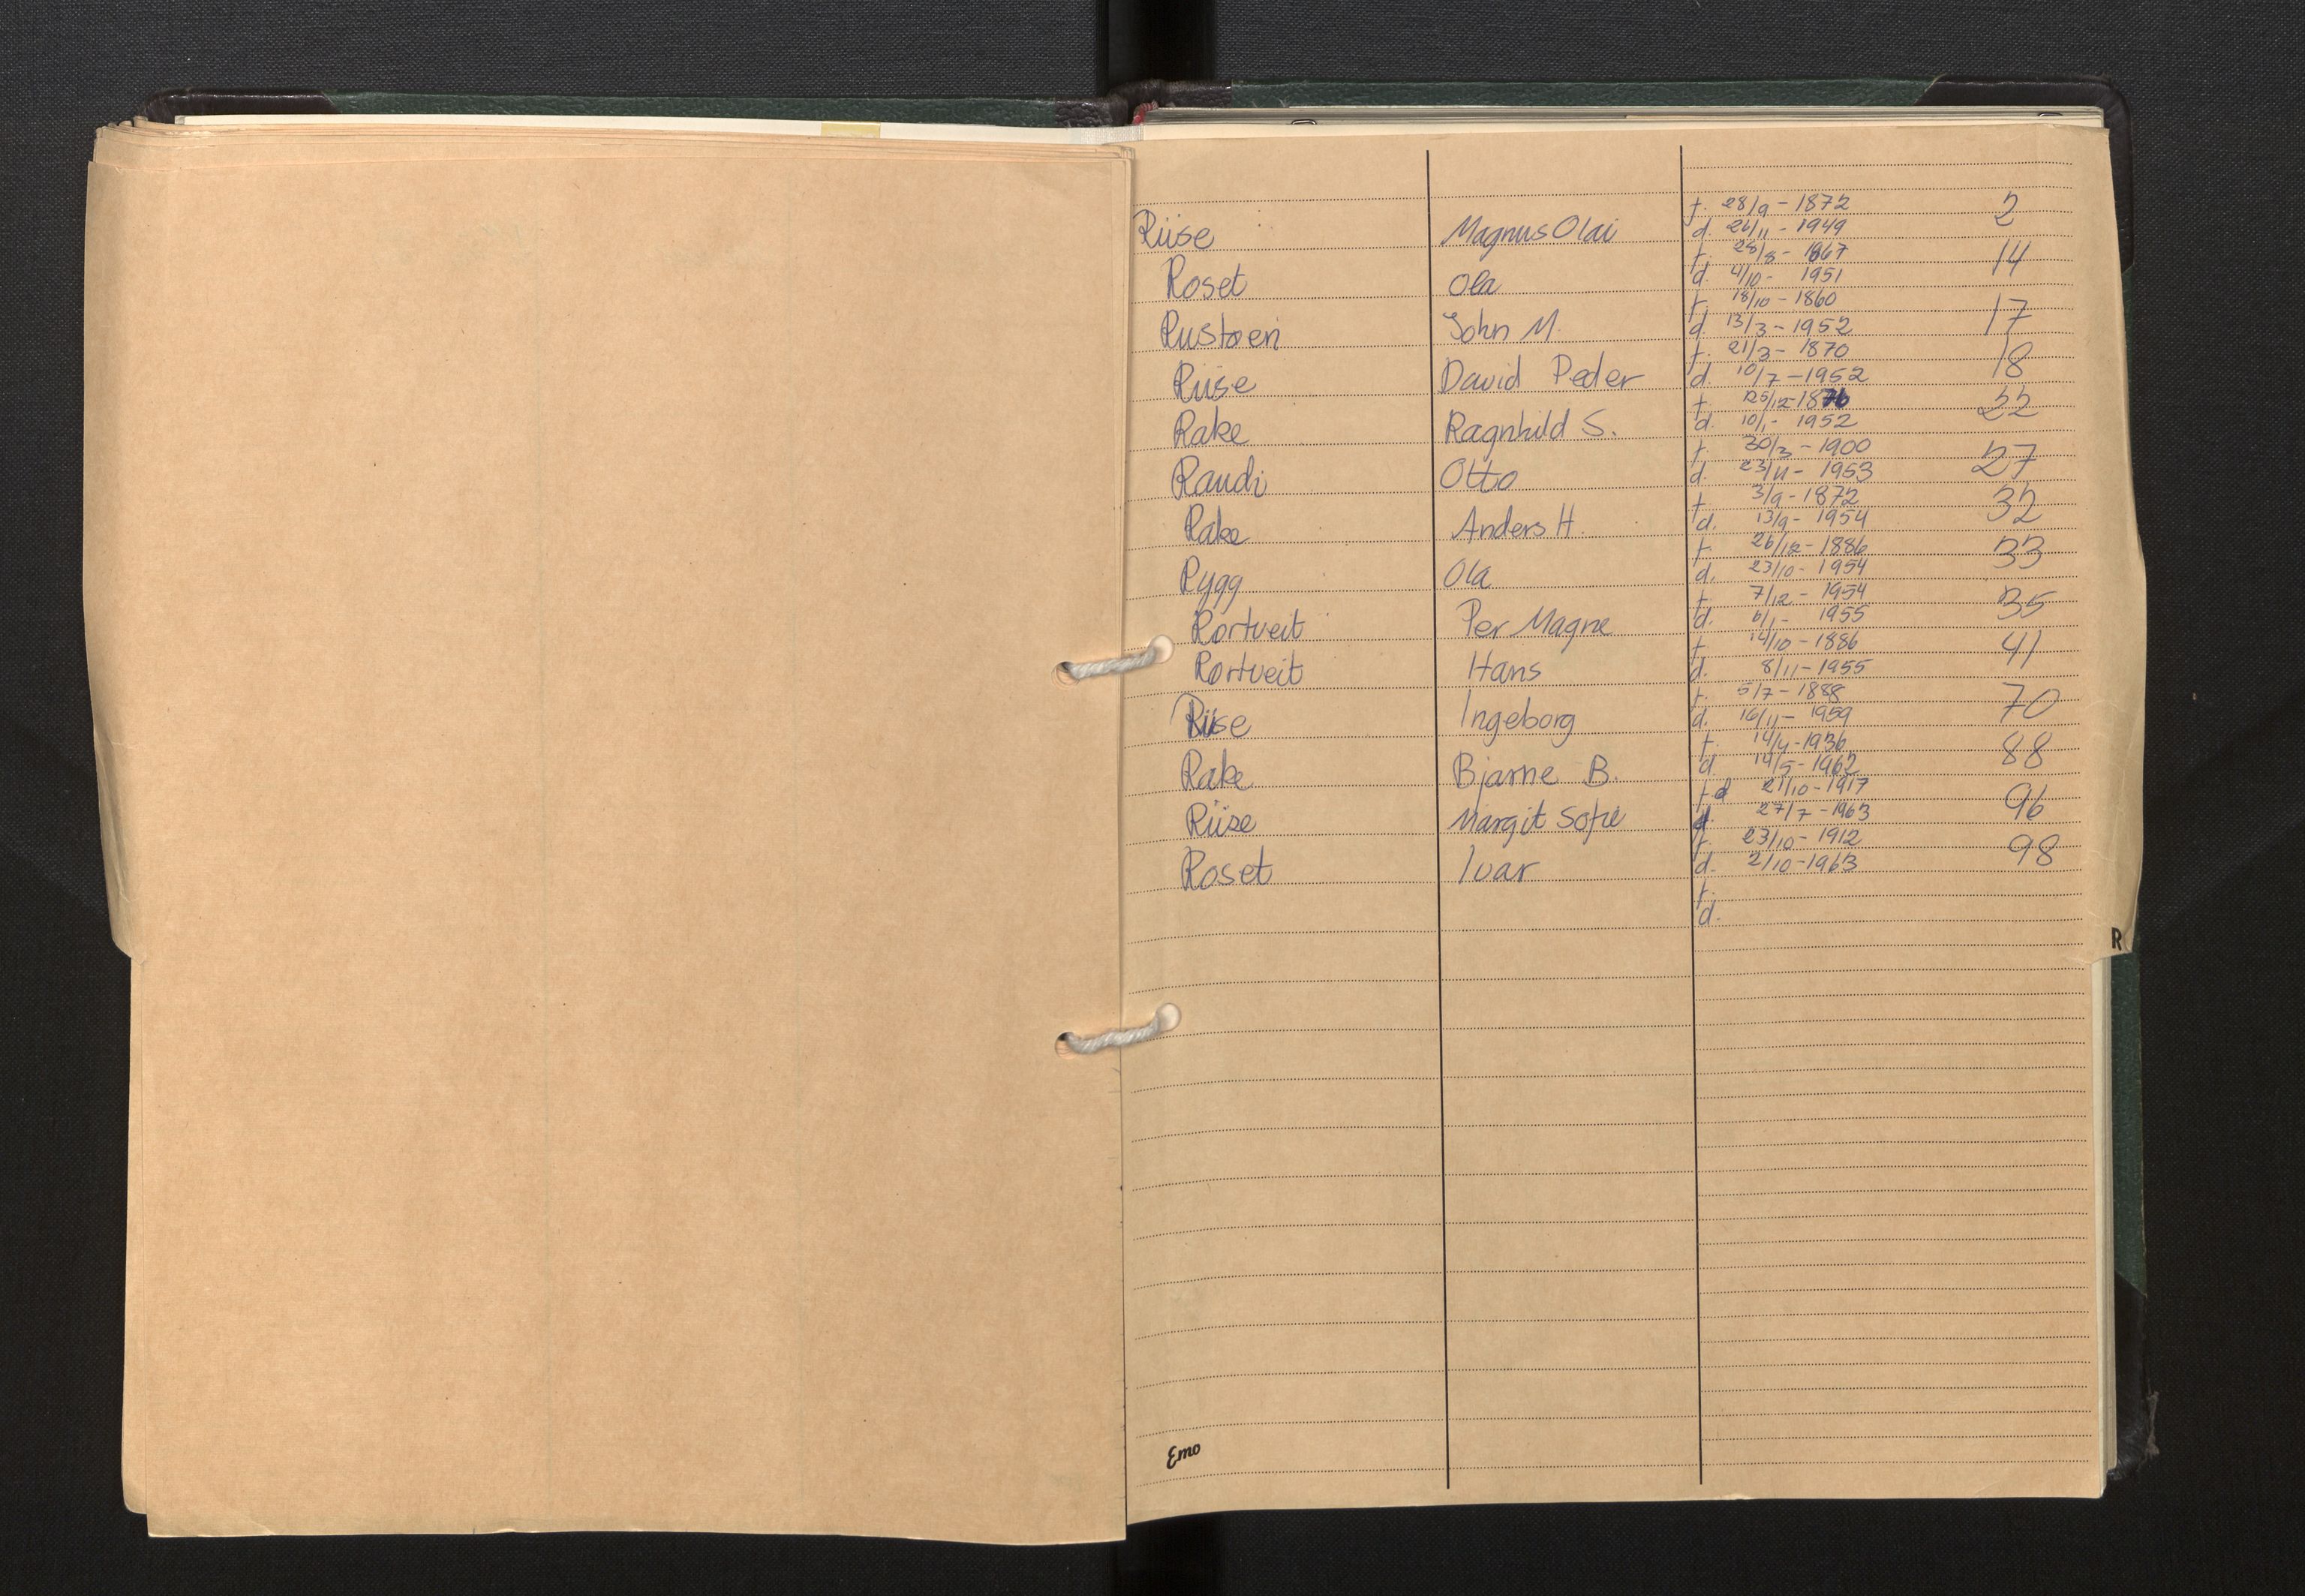 f. 28/9 - 1872 2
Riise Magnus Olai d. 24/11 - 1949
f. 28/8 - 1867 14
Roset Ola d. 4/10 - 1951
f. 18/10 - 1860
Rustøen John M. d. 13/3 - 1952 17
f. 21/3 - 1870
Riise David Peder d. 10/7 - 1952 18
f. 25/12 - 1876 22
Rake Ragnhild S. d. 10/1 - 1952
f. 30/3 - 1900
Raudi Otto d. 23/11 - 1953 27
f. 3/9 - 1872
Rake Anders H. d. 13/9 - 1954 32
f. 26/12 - 1886 33
Rygg Ola d. 23/10 - 1954
f. 7/12 - 1954 35
Rortveit Per Magne d. 6/1 - 1955
f. 14/10 - 1886 41
Rortveit Hans d. 8/11 - 1955
f. 5/7 - 1888 70
Riise Ingeborg d. 16/11 - 1959
f. 14/4 - 1936 88
Rake Bjarne B. d. 14/5 - 1962
f. d 21/10 - 1917 96
Riise Margit Sofie d. 27/7 - 1963
f. 23/10 - 1912 98
Roset Ivar d. 2/10 - 1963
f.
d.
R
Emo